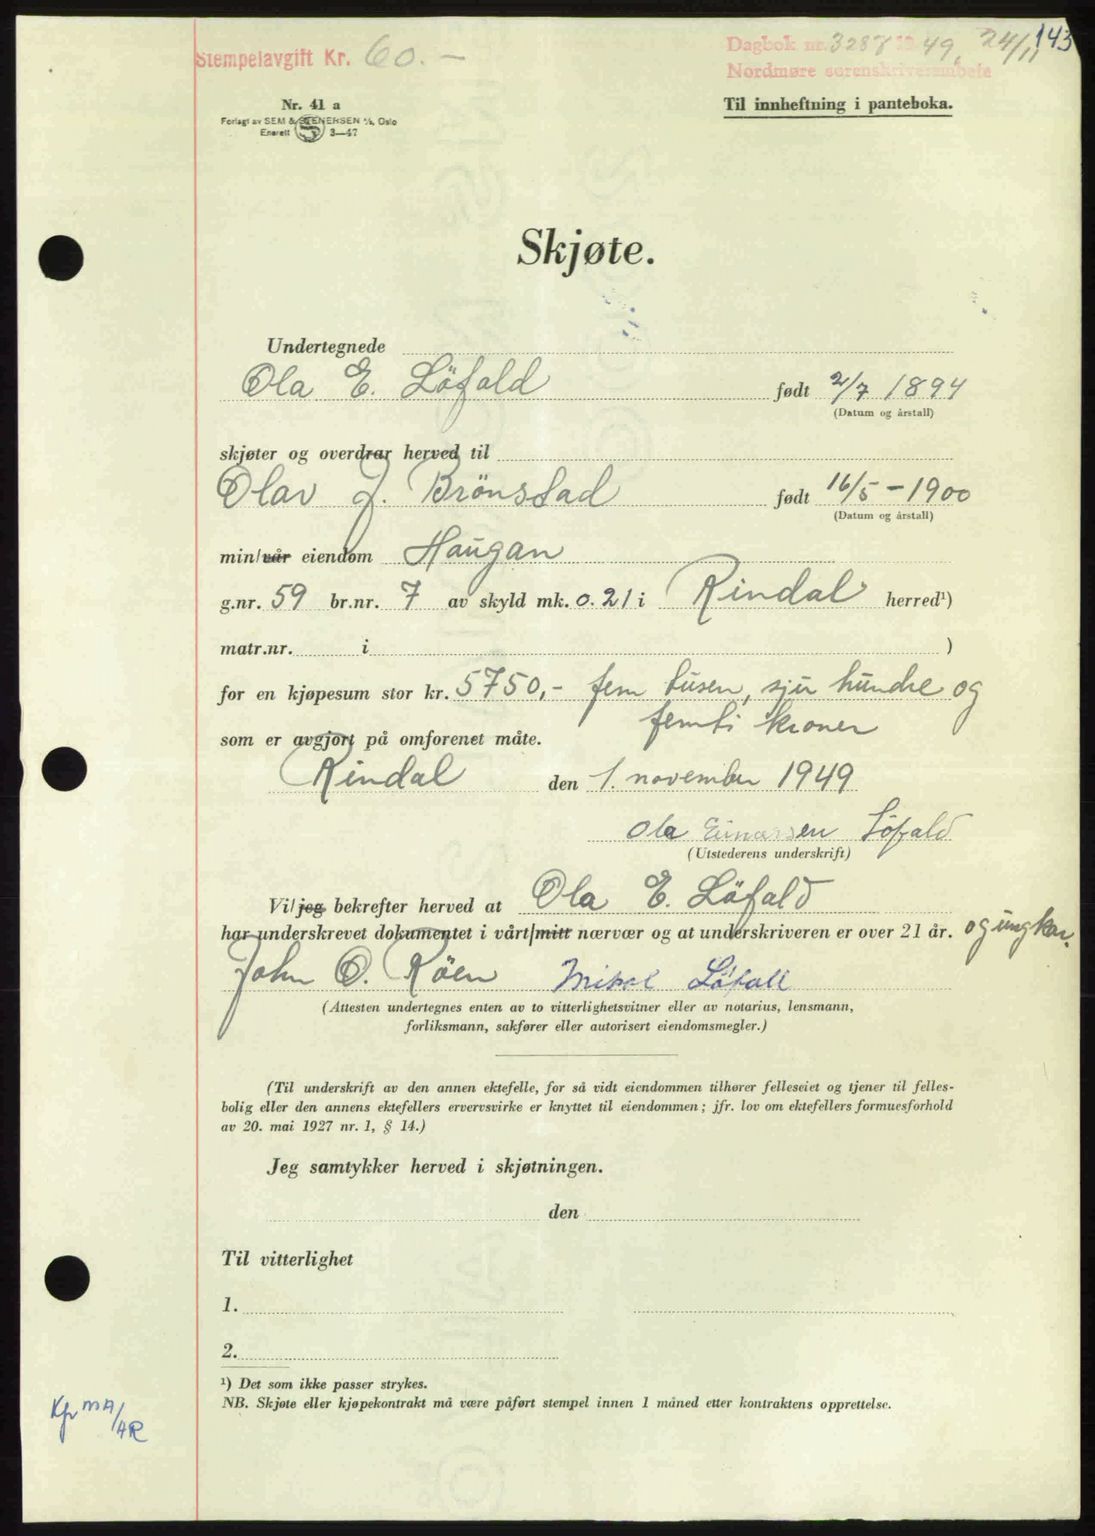 143
Stempelavgift Kr. 60.—
Dagbok nr. 3287 1949, 24/11
Nordmøre sorenskriverembete
Nr. 41 a
Forlagt av SEM & STENERSEN A/S, Oslo
Enerett 3—47
Til innheftning i panteboka.
Skjøte.
Undertegnede
Ola E. Löfald født 2/7 1894
(Datum og årstall)
skjøter og overdrar herved til
Olav J. Brönstad født 16/5 - 1900
(Datum og årstall)
min/vår eiendom Haugan
g.nr. 59 br.nr. 7 av skyld mk. 0.21 i Rindal herred¹)
matr.nr. i )
for en kjøpesum stor kr. 5750,- fem tusen, sju hundre og
femti kroner
som er avgjort på omforenet måte.
Rindal den 1. november 1949
Ola Einarsen Löfald
(Utstederens underskrift)
Vi/jeg bekrefter herved at Ola E. Löfald
har underskrevet dokumentet i vårt/mitt nærvær og at underskriveren er over 21 år. og ungkar.
John O. Röen Mikal Löfall
(Attesten undertegnes enten av to vitterlighetsvitner eller av notarius, lensmann,
forliksmann, sakfører eller autorisert eiendomsmegler.)
(Til underskrift av den annen ektefelle, for så vidt eiendommen tilhører felleseiet og tjener til felles-
bolig eller den annens ektefellers ervervsvirke er knyttet til eiendommen; jfr. lov om ektefellers formuesforhold
av 20. mai 1927 nr. 1, § 14.)
Jeg samtykker herved i skjøtningen.
den
Til vitterlighet
1.
2.
¹) Det som ikke passer strykes.
NB. Skjøte eller kjøpekontrakt må være påført stempel innen 1 måned etter kontraktens opprettelse.
Kfr MA/AR